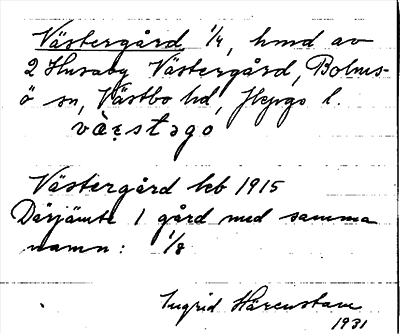 Västergård 1/4, hmd av
2 Husaby Västergård, Bolms-
ö sn, Västbo hd, Jkpgs l.
væ̀stəgo
Västergård kb 1915
Därjämte 1 gård med samma
namn: 1/8
Ingrid Härenstam
1931